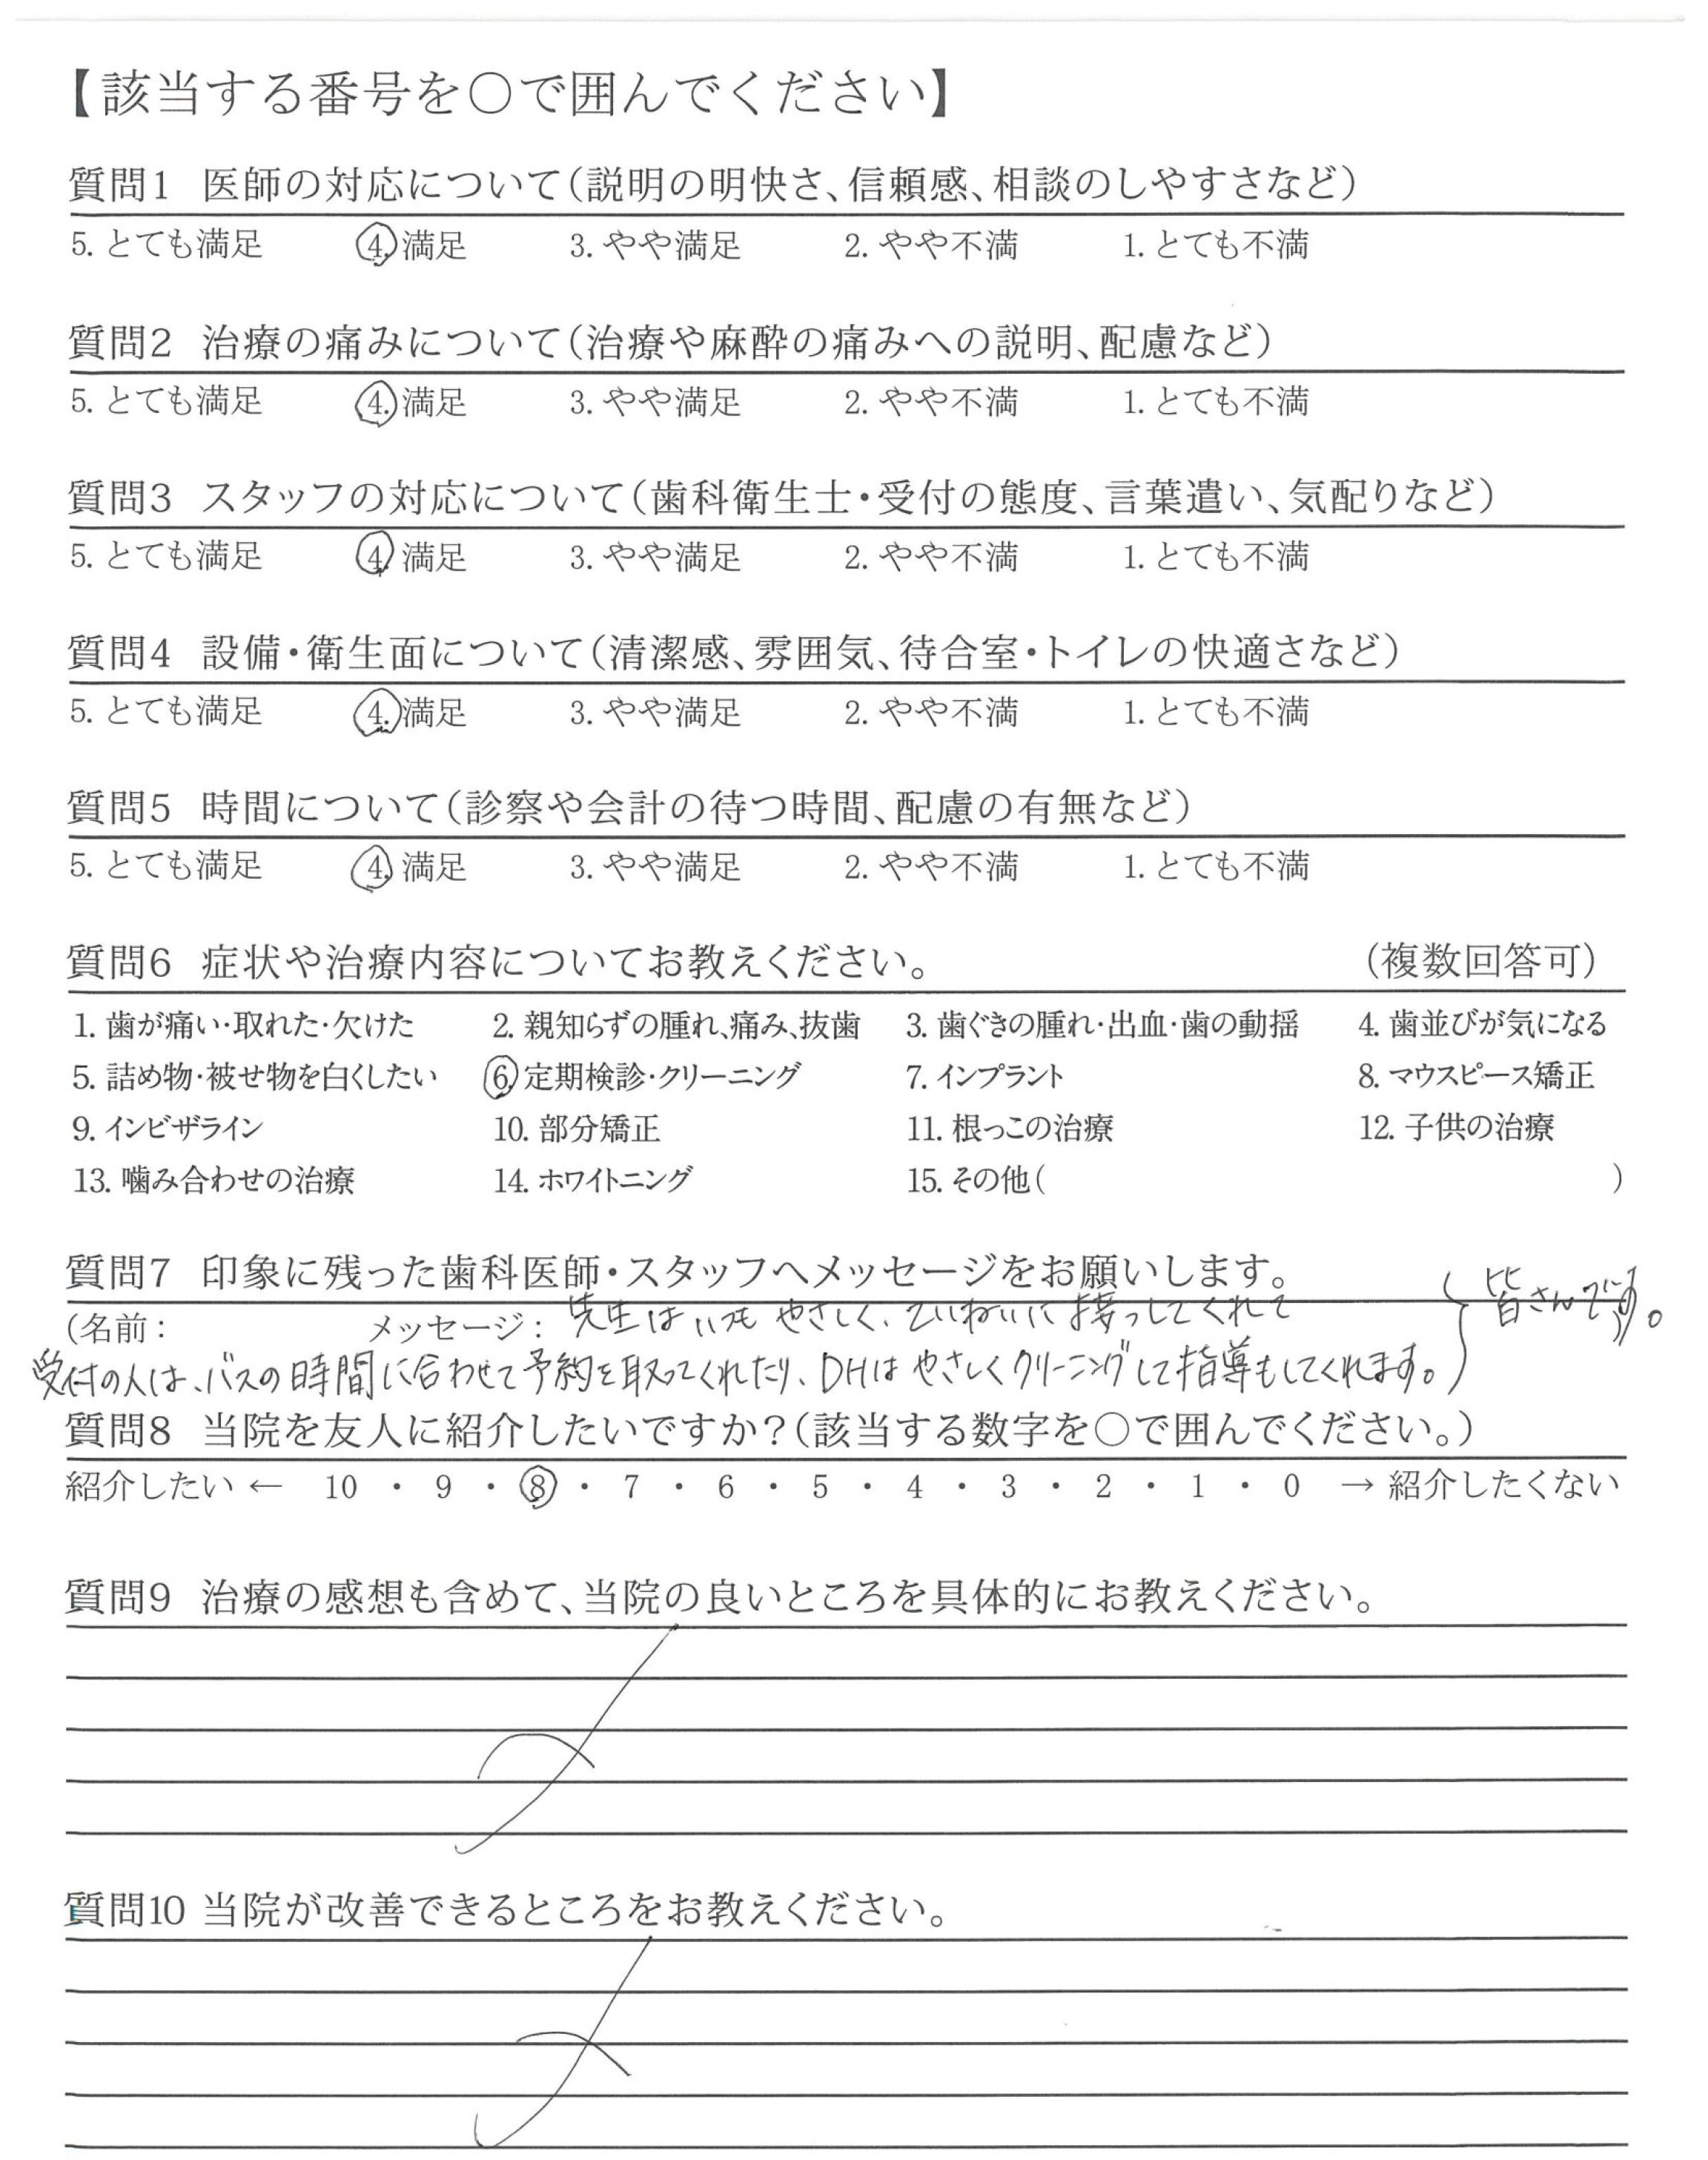 【該当する番号を○で囲んでください】
質問1 医師の対応について(説明の明快さ、信頼感、相談のしやすさなど)
5. とても満足 4. 満足 3. やや満足 2. やや不満 1. とても不満
質問2 治療の痛みについて(治療や麻酔の痛みへの説明、配慮など)
5. とても満足 4. 満足 3. やや満足 2. やや不満 1. とても不満
質問3 スタッフの対応について(歯科衛生士・受付の態度、言葉遣い、気配りなど)
5. とても満足 4. 満足 3. やや満足 2. やや不満 1. とても不満
質問4 設備・衛生面について(清潔感、雰囲気、待合室・トイレの快適さなど)
5. とても満足 4. 満足 3. やや満足 2. やや不満 1. とても不満
質問5 時間について(診察や会計の待つ時間、配慮の有無など)
5. とても満足 4. 満足 3. やや満足 2. やや不満 1. とても不満
質問6 症状や治療内容についてお教えください。 (複数回答可)
1. 歯が痛い・取れた・欠けた 2. 親知らずの腫れ、痛み、抜歯 3. 歯ぐきの腫れ・出血・歯の動揺 4. 歯並びが気になる
5. 詰め物・被せ物を白くしたい 6. 定期検診・クリーニング 7. インプラント 8. マウスピース矯正
9. インビザライン 10. 部分矯正 11. 根っこの治療 12. 子供の治療
13. 噛み合わせの治療 14. ホワイトニング 15. その他( )
質問7 印象に残った歯科医師・スタッフへメッセージをお願いします。
(名前: メッセージ: 先生はいつもやさしく、ていねいに接っしてくれて
受付の人は、バスの時間に合わせて予約を取ってくれたり、DHはやさしくクリーニングして指導もしてくれます。
皆さんです。
質問8 当院を友人に紹介したいですか?(該当する数字を○で囲んでください。)
紹介したい ← 10 ・ 9 ・ 8 ・ 7 ・ 6 ・ 5 ・ 4 ・ 3 ・ 2 ・ 1 ・ 0 → 紹介したくない
質問9 治療の感想も含めて、当院の良いところを具体的にお教えください。
質問10 当院が改善できるところをお教えください。